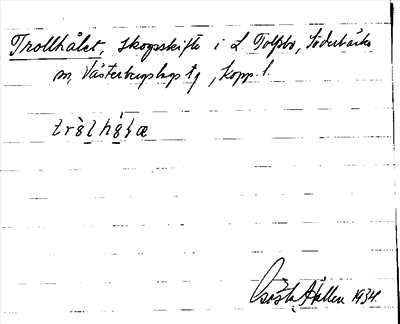 Trollhålet, skogsskifte i L. Tolfsbo, Söderbärke
sn, Västerbergslags tg, Kopp. l.
Gösta Hallen 1934.